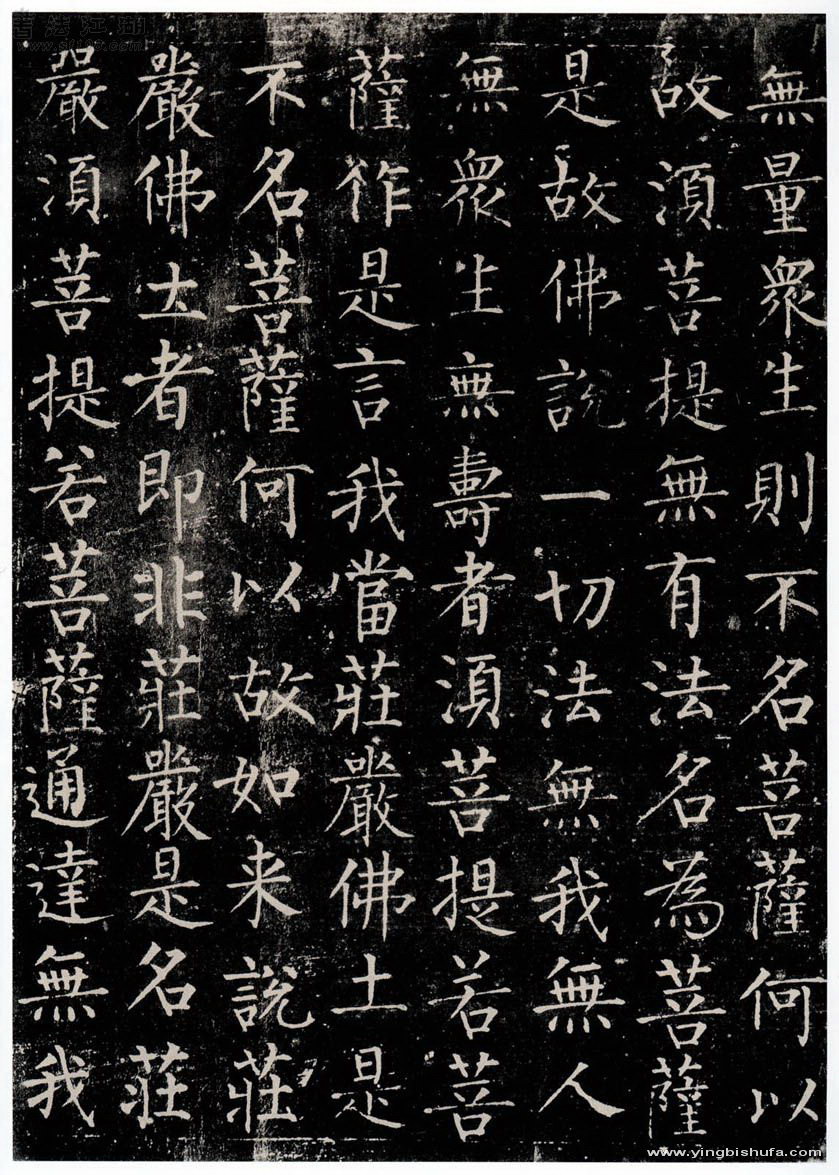 無量衆生則不名菩薩何以
故須菩提無有法名為菩薩
是故佛說一切法無我無人
無衆生無壽者須菩提若菩
薩作是言我當莊嚴佛土是
不名菩薩何以故如来說莊
嚴佛土者即非莊嚴是名莊
嚴須菩提若菩薩通達無我
www.yingbishufa.com